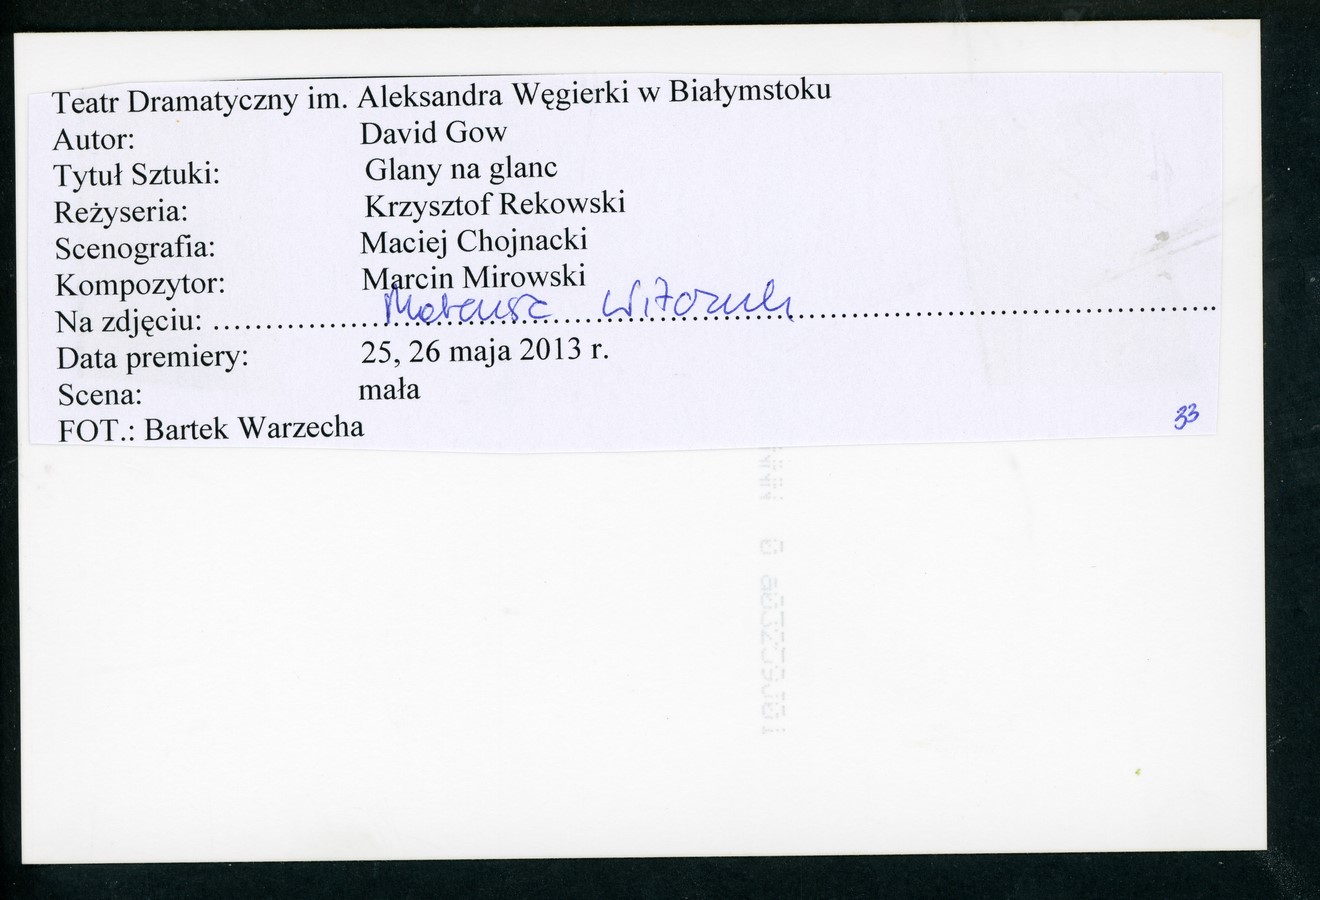 Teatr Dramatyczny im. Aleksandra Węgierki w Białymstoku
Autor: David Gow
Tytuł Sztuki: Glany na glanc
Reżyseria: Krzysztof Rekowski
Scenografia: Maciej Chojnacki
Kompozytor: Marcin Mirowski
Na zdjęciu: Mateusz Witczuk
Data premiery: 25, 26 maja 2013 r.
Scena: mała
FOT.: Bartek Warzecha
33